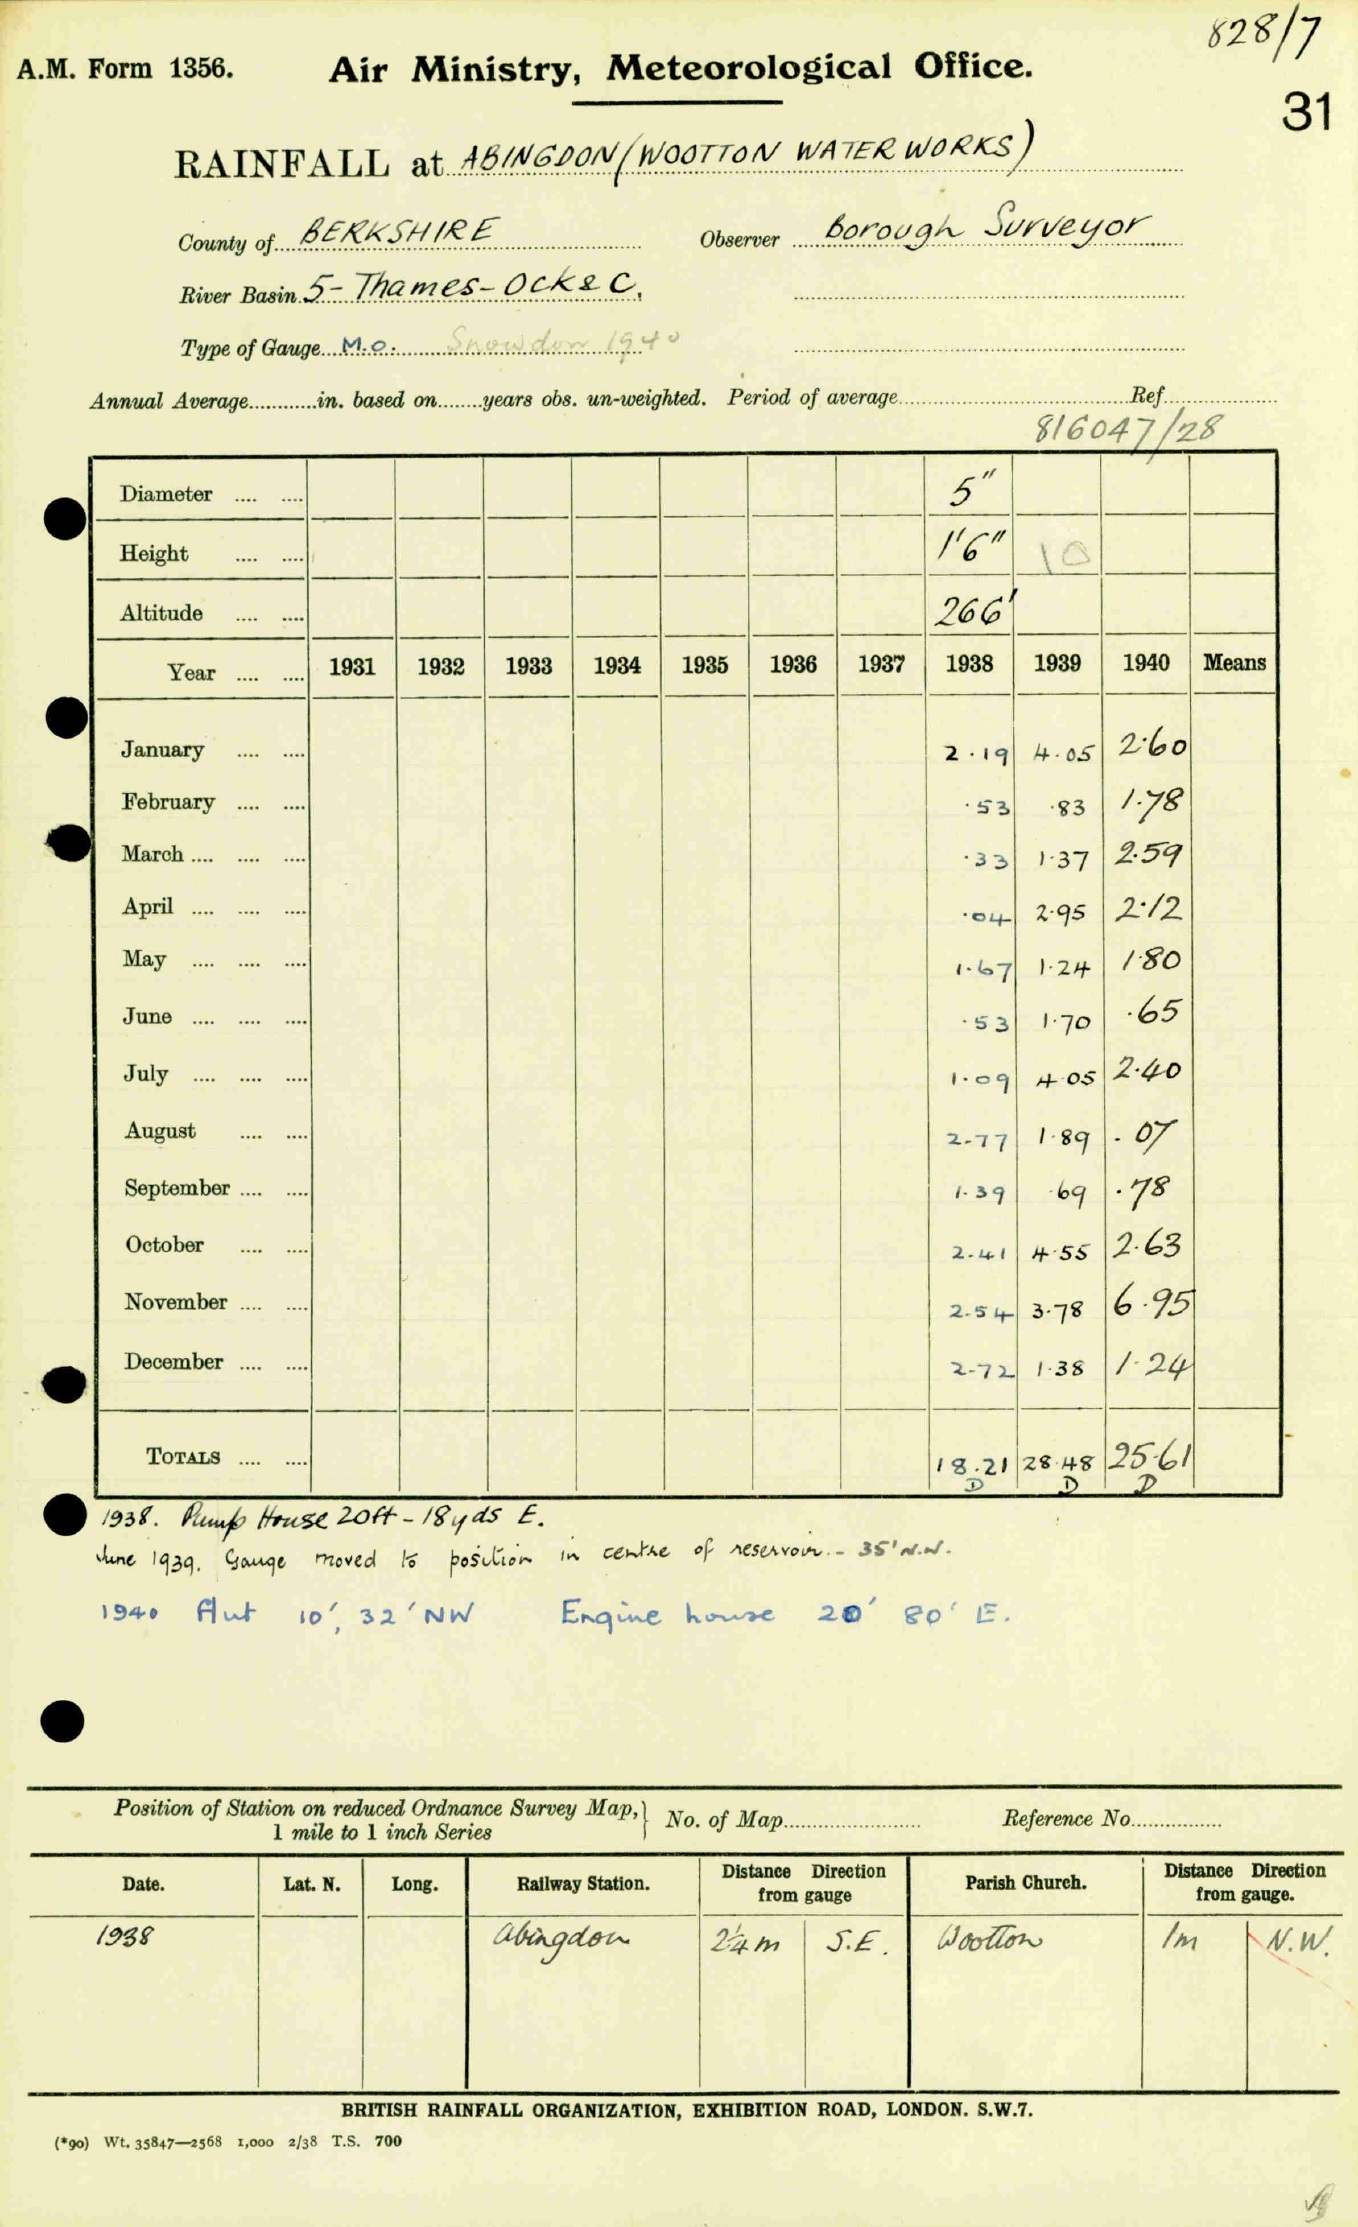 828/7
A.M. Form 1356. Air Ministry, Meteorological Office.
31
RAINFALL at ABINGDON (WOOTTON WATER WORKS)
County of BERKSHIRE Observer Borough Surveyor
River Basin 5- Thames - Ock &c.
Type of Gauge M.O. Snowdon 1940
Annual Average............in. based on........years obs. un-weighted. Period of average.............Ref.............
816047/28
Diameter .... .... 5"
Height .... .... 1'6" 10
Altitude .... .... 266'
Year .... .... 1931 1932 1933 1934 1935 1936 1937 1938 1939 1940 Means
January .... .... 2.19 4.05 2.60
February .... .... .53 .83 1.78
March .... .... .... .33 1.37 2.59
April .... .... .... .04 2.95 2.12
May .... .... .... 1.67 1.24 1.80
June .... .... .... .53 1.70 .65
July .... .... .... 1.09 4.05 2.40
August .... .... 2.77 1.89 .07
September .... .... 1.39 .69 .78
October .... .... 2.41 4.55 2.63
November .... .... 2.54 3.78 6.95
December .... .... 2.72 1.38 1.24
TOTALS .... .... 18.21 28.48 25.61
D D D
1938. Pump House 20ft - 18yds E.
June 1939. Gauge moved to position in centre of reservoir. - 35' N.W.
1940 Hut 10', 32' NW Engine house 20' 80' E.
Position of Station on reduced Ordnance Survey Map, No. of Map............ Reference No............
1 mile to 1 inch Series
Date. Lat. N. Long. Railway Station. Distance Direction from gauge Parish Church. Distance Direction from gauge.
1938 Abingdon 2¼ m S.E. Wootton 1m N.W.
BRITISH RAINFALL ORGANIZATION, EXHIBITION ROAD, LONDON. S.W.7.
(*90) Wt. 35847—2568 1,000 2/38 T.S. 700